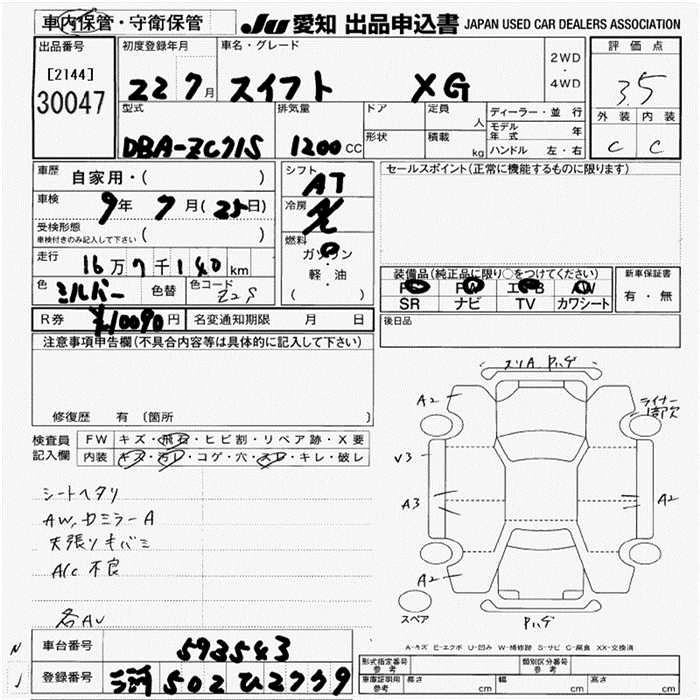 車内保管・守衛保管
JU 愛知 出品申込書 JAPAN USED CAR DEALERS ASSOCIATION
出品番号
[2144]
30047
初度登録年月
22 7月
車名・グレード
スイフト XG
2WD
・
4WD
評価点
3.5
外装 内装
C C
型式
DBA-ZC71S
排気量
1200 CC
ドア
形状
定員
人
積載
kg
ディーラー・並行
モデル年式 年
ハンドル 左・右
車歴
自家用・( )
車検
9年 7月(25日)
受検形態
車検付きのみ記入して下さい ( )
走行
16万7千140km
色 シルバー 色替 色コード Z2S
R券 ¥10090円 名変通知期限 月 日
シフト
AT
冷房
燃料
ガソリン
軽・油
( )
セールスポイント(正常に機能するものに限ります)
装備品(純正品に限り○をつけてください)
PS PW エアB AW
SR ナビ TV カワシート
新車保証書
有・無
後日品
注意事項申告欄(不具合内容等は具体的に記入して下さい)
修復歴 有 (箇所
検査員
記入欄
FW キズ・飛石・ヒビ割・リペア跡・X要
内装 キズ・汚レ・コゲ・穴・スレ・キレ・破レ
シートヘタリ
AW,ドミラーA
天張りキバミ
A/C 不良
各AU
車台番号 593543
登録番号 502 ひ2779
スリA. Pハゲ
A2
ライナー1部欠
V3
A3
A2
A2
スペア
Pハゲ
A-キズ E-エクボ U-凹み W-補修跡 S-サビ C-腐食 XX-交換済
形式指定番号
参考
類別区分番号
参考
車庫証明用
参考
長さ cm 幅 cm 高さ cm